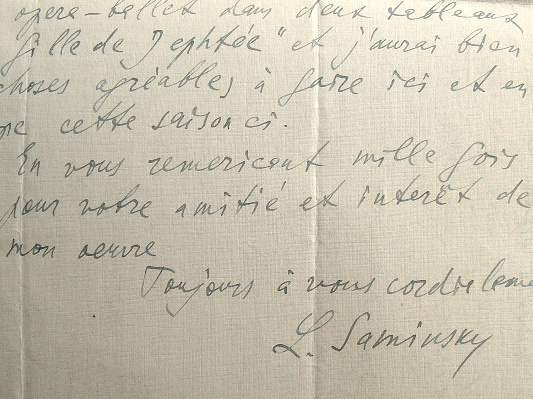 opera-ballet dans deux tableaux
fille de Jephtée" et j'aurai bien
choses agréables à faire ici et en
cette saison ci.
En vous remericant mille fois
pour votre amitié et interêt de
mon oeuvre
Toujours à vous cordialeme
L. Saminsky